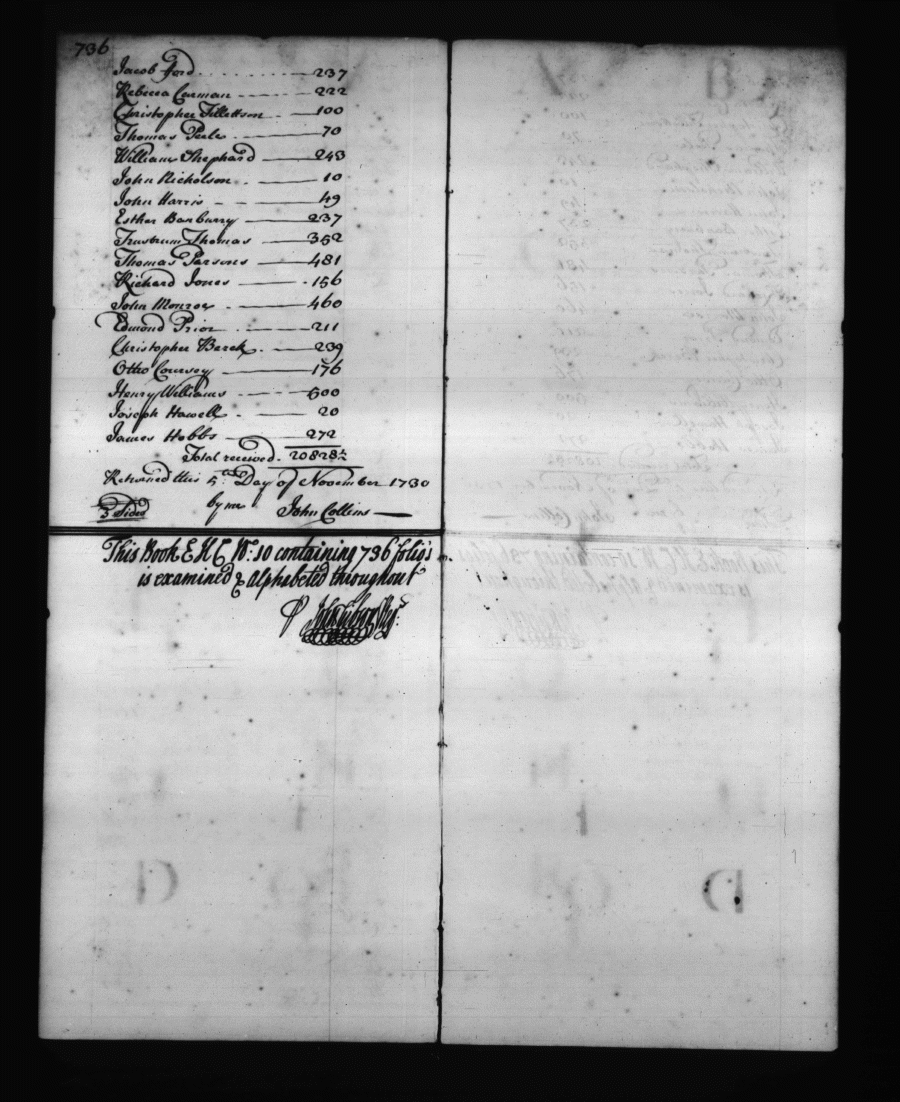 736
Jacob Ford 237
Rebecca Carman 222
Christopher Tillettson 100
Thomas Peele 70
William Shephard 243
John Nicholson 10
John Harris 49
Esther Banburry 237
Trustrum Thomas 352
Thomas Parsons 481
Richard Jones 156
John Monroe 460
Edmond Prior 211
Christopher Barek 239
Otho Coursey 176
Henry Williams 500
Joseph Hawell 20
James Hobbs 272
Total received 20828½
Returned this 5th Day of November 1730
3 Sides by me John Collins
This Book E H C No: 10 containing 736 folio's
is examined & Alphabeted throughout
P John Gibson Regr